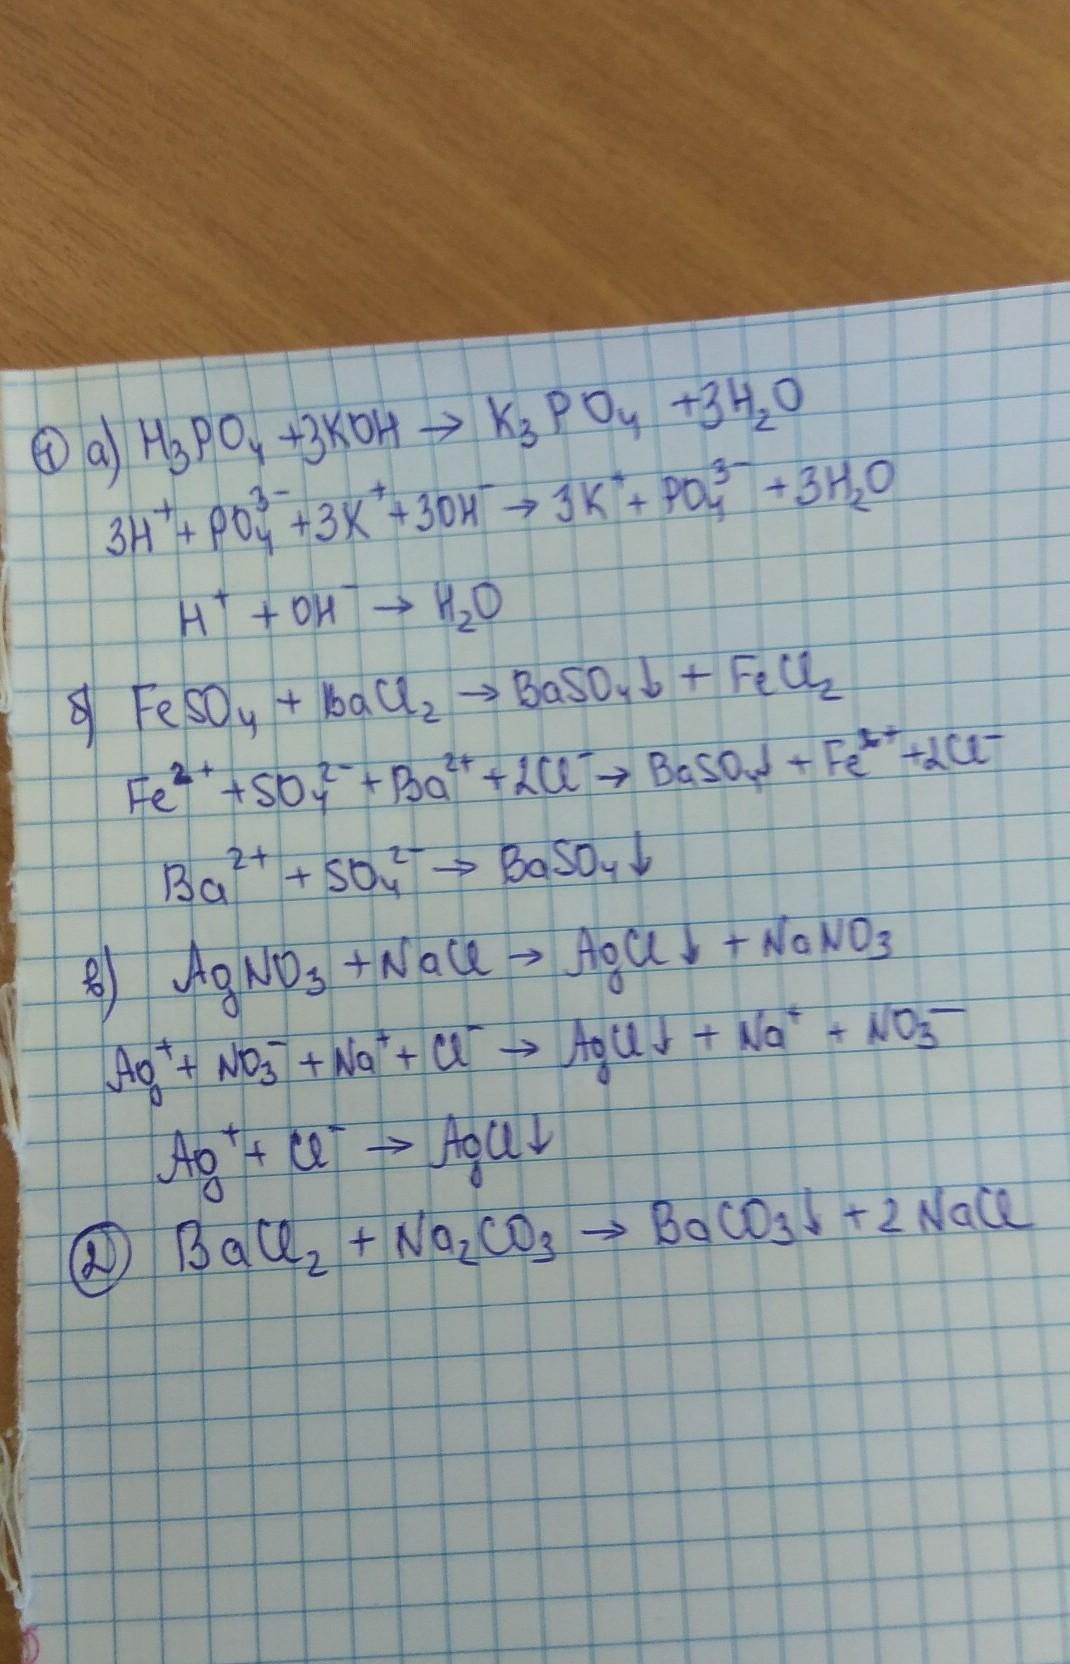 ① а) H₃PO₄ + 3KOH → K₃PO₄ + 3H₂O
3H⁺ + PO₄³⁻ + 3K⁺ + 3OH⁻ → 3K⁺ + PO₄³⁻ + 3H₂O
H⁺ + OH⁻ → H₂O
б) FeSO₄ + BaCl₂ → BaSO₄↓ + FeCl₂
Fe²⁺ + SO₄²⁻ + Ba²⁺ + 2Cl⁻ → BaSO₄↓ + Fe²⁺ + 2Cl⁻
Ba²⁺ + SO₄²⁻ → BaSO₄↓
в) AgNO₃ + NaCl → AgCl↓ + NaNO₃
Ag⁺ + NO₃⁻ + Na⁺ + Cl⁻ → AgCl↓ + Na⁺ + NO₃⁻
Ag⁺ + Cl⁻ → AgCl↓
② BaCl₂ + Na₂CO₃ → BaCO₃↓ + 2NaCl